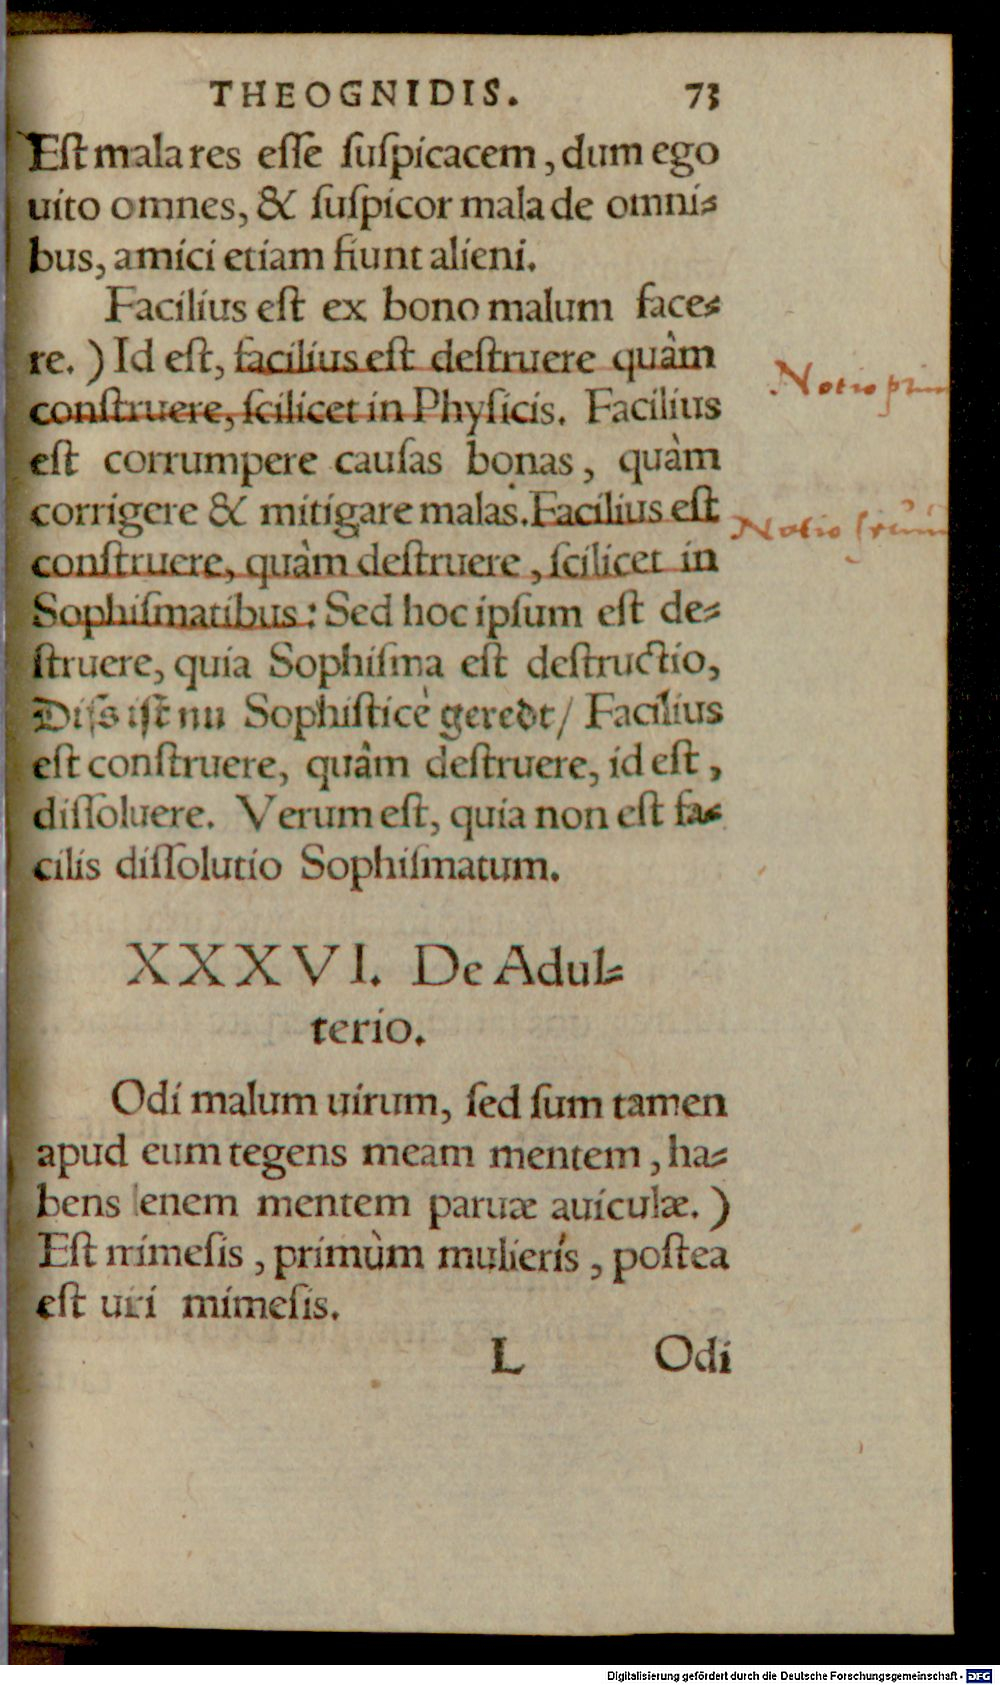 THEOGNIDIS. 73
Eſt mala res eſſe ſuſpicacem, dum ego
uito omnes, & ſuſpicor mala de omni⸗
bus, amici etiam fiunt alieni.
Facilius eſt ex bono malum face⸗
re.) Id eſt, facilius eſt deſtruere quàm
conſtruere, ſcilicet in Phyſicis. Facilius
eſt corrumpere cauſas bonas, quàm
corrigere & mitigare malas. Facilius eſt
conſtruere, quàm deſtruere, ſcilicet in
Sophiſmatibus: Sed hoc ipſum eſt de⸗
ſtruere, quia Sophiſma eſt deſtructio,
Diſs iſt nu Sophiſticè geredt/ Facilius
eſt conſtruere, quâm deſtruere, id eſt,
diſſoluere. Verum eſt, quia non eſt fa⸗
cilis diſſolutio Sophiſmatum.
XXXVI. De Adul⸗
terio.
Odi malum uirum, ſed ſum tamen
apud eum tegens meam mentem, ha⸗
bens lenem mentem paruæ auiculæ.)
Eſt mimeſis, primùm mulieris, poſtea
eſt uiri mimeſis.
L Odi
Notio prim
Notio
Digitalisierung gefördert durch die Deutsche Forschungsgemeinschaft - DFG